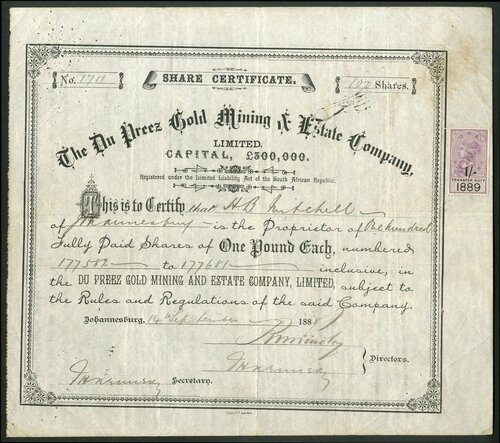 No. 1711
SHARE CERTIFICATE.
100 Shares.
The Du Preez Gold Mining & Estate Company,
LIMITED.
CAPITAL, £300,000.
Registered under the Limited Liability Act of the South African Republic.
This is to Certify that H B Mitchell
of Johannesburg is the Proprietor of One hundred
Fully Paid Shares of One Pound Each, numbered
177582 to 177681 inclusive, in
the DU PREEZ GOLD MINING AND ESTATE COMPANY, LIMITED, subject to
the Rules and Regulations of the said Company.
Johannesburg, 14th September 1889
Directors.
Secretary.
1/-
TRANSFER DUTY
1889